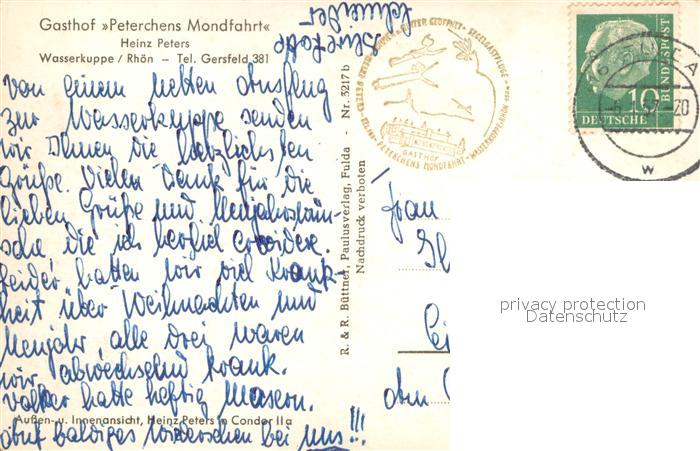 Gasthof »Peterchens Mondfahrt«
Heinz Peters
Wasserkuppe / Rhön – Tel. Gersfeld 381
Von einem netten Ausflug
zur Wasserkuppe senden
wir Ihnen die herzlichsten
Grüße. Vielen Dank für die
lieben Grüße und Neujahrswün-
sche die ich herzlich erwidere.
Leider hatten wir viel Krank-
heit über Weihnachten und
Neujahr alle drei waren
wir abwechselnd krank.
Volker hatte heftig Masern.
Außen- u. Innenansicht, Heinz Peters in Condor IIa
Auf baldiges Wiedersehen bei uns!!!
Schneider
R. & R. Büttner, Paulusverlag, Fulda - Nr. 3217 b
Nachdruck verboten
GASTHOF
PETERCHENS MONDFAHRT - WASSERKUPPE/RHÖN
10
DEUTSCHE
BUNDESPOST
FULDA
w
Frau
privacy protection
Datenschutz